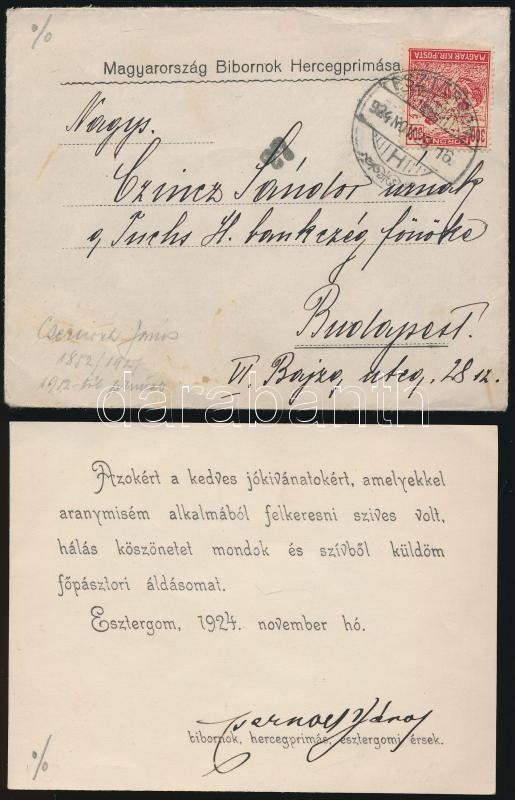 %
Magyarország Bibornok Hercegprimása
MAGYAR KIR. POSTA
KORONA
ESZTERGOM
924 NOV
Nagys.
Czincz Sándor urnak
a Fuchs H. bankczég főnöke
Budapest.
VI. Bajza utca, 28 sz.
Csernoch János
1852/1927
1912-től prímás
darabanth
Azokért a kedves jókivánatokért, amelyekkel
aranymisém alkalmából felkeresni szives volt,
hálás köszönetet mondok és szívből küldöm
főpásztori áldásomat.
Esztergom, 1924. november hó.
Csernoch János
bibornok, hercegprimás, esztergomi érsek.
%